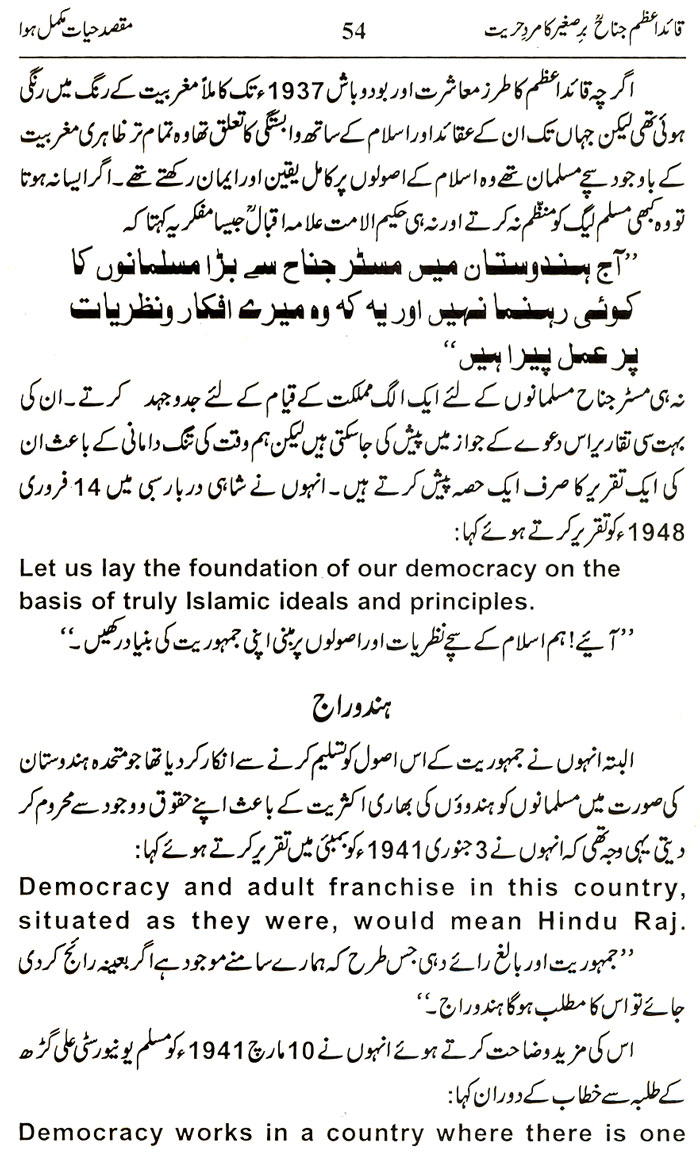 قائداعظم جناحؒ برِصغیر کا مردِ حریت 54 مقصد حیات مکمل ہوا
اگرچہ قائداعظم کا طرز معاشرت اور بودوباش 1937ء تک کاملاً مغربیت کے رنگ میں رنگی
ہوئی تھی لیکن جہاں تک ان کے عقائد اور اسلام کے ساتھ وابستگی کا تعلق تھا وہ تمام تر ظاہری مغربیت
کے باوجود سچے مسلمان تھے وہ اسلام کے اصولوں پر کامل یقین اور ایمان رکھتے تھے۔ اگر ایسا نہ ہوتا
تو وہ کبھی مسلم لیگ کو منظّم نہ کرتے اور نہ ہی حکیم الامت علامہ اقبالؒ جیسا مفکر یہ کہتا کہ
”آج ہندوستان میں مسٹر جناح سے بڑا مسلمانوں کا
کوئی رہنما نہیں اور یہ کہ وہ میرے افکار ونظریات
پر عمل پیرا ہیں“
نہ ہی مسٹر جناح مسلمانوں کے لئے ایک الگ مملکت کے قیام کے لئے جدوجہد کرتے۔ ان کی
بہت سی تقاریر اس دعوے کے جواز میں پیش کی جاسکتی ہیں لیکن ہم وقت کی تنگ دامانی کے باعث ان
کی ایک تقریر کا صرف ایک حصہ پیش کرتے ہیں۔ انہوں نے شاہی دربار سبی میں 14 فروری
1948ء کو تقریر کرتے ہوئے کہا:
Let us lay the foundation of our democracy on the
basis of truly Islamic ideals and principles.
”آیئے! ہم اسلام کے سچے نظریات اور اصولوں پر مبنی اپنی جمہوریت کی بنیاد رکھیں۔“
ہندو راج
البتہ انہوں نے جمہوریت کے اس اصول کو تسلیم کرنے سے انکار کر دیا تھا جو متحدہ ہندوستان
کی صورت میں مسلمانوں کو ہندوؤں کی بھاری اکثریت کے باعث اپنے حقوق و وجود سے محروم کر
دیتی یہی وجہ تھی کہ انہوں نے 3 جنوری 1941ء کو بمبئی میں تقریر کرتے ہوئے کہا:
Democracy and adult franchise in this country,
situated as they were, would mean Hindu Raj.
”جمہوریت اور بالغ رائے دہی جس طرح کہ ہمارے سامنے موجود ہے اگر بعینہ رائج کردی
جائے تو اس کا مطلب ہوگا ہندو راج۔“
اس کی مزید وضاحت کرتے ہوئے انہوں نے 10 مارچ 1941ء کو مسلم یونیورسٹی علی گڑھ
کے طلبہ سے خطاب کے دوران کہا:
Democracy works in a country where there is one